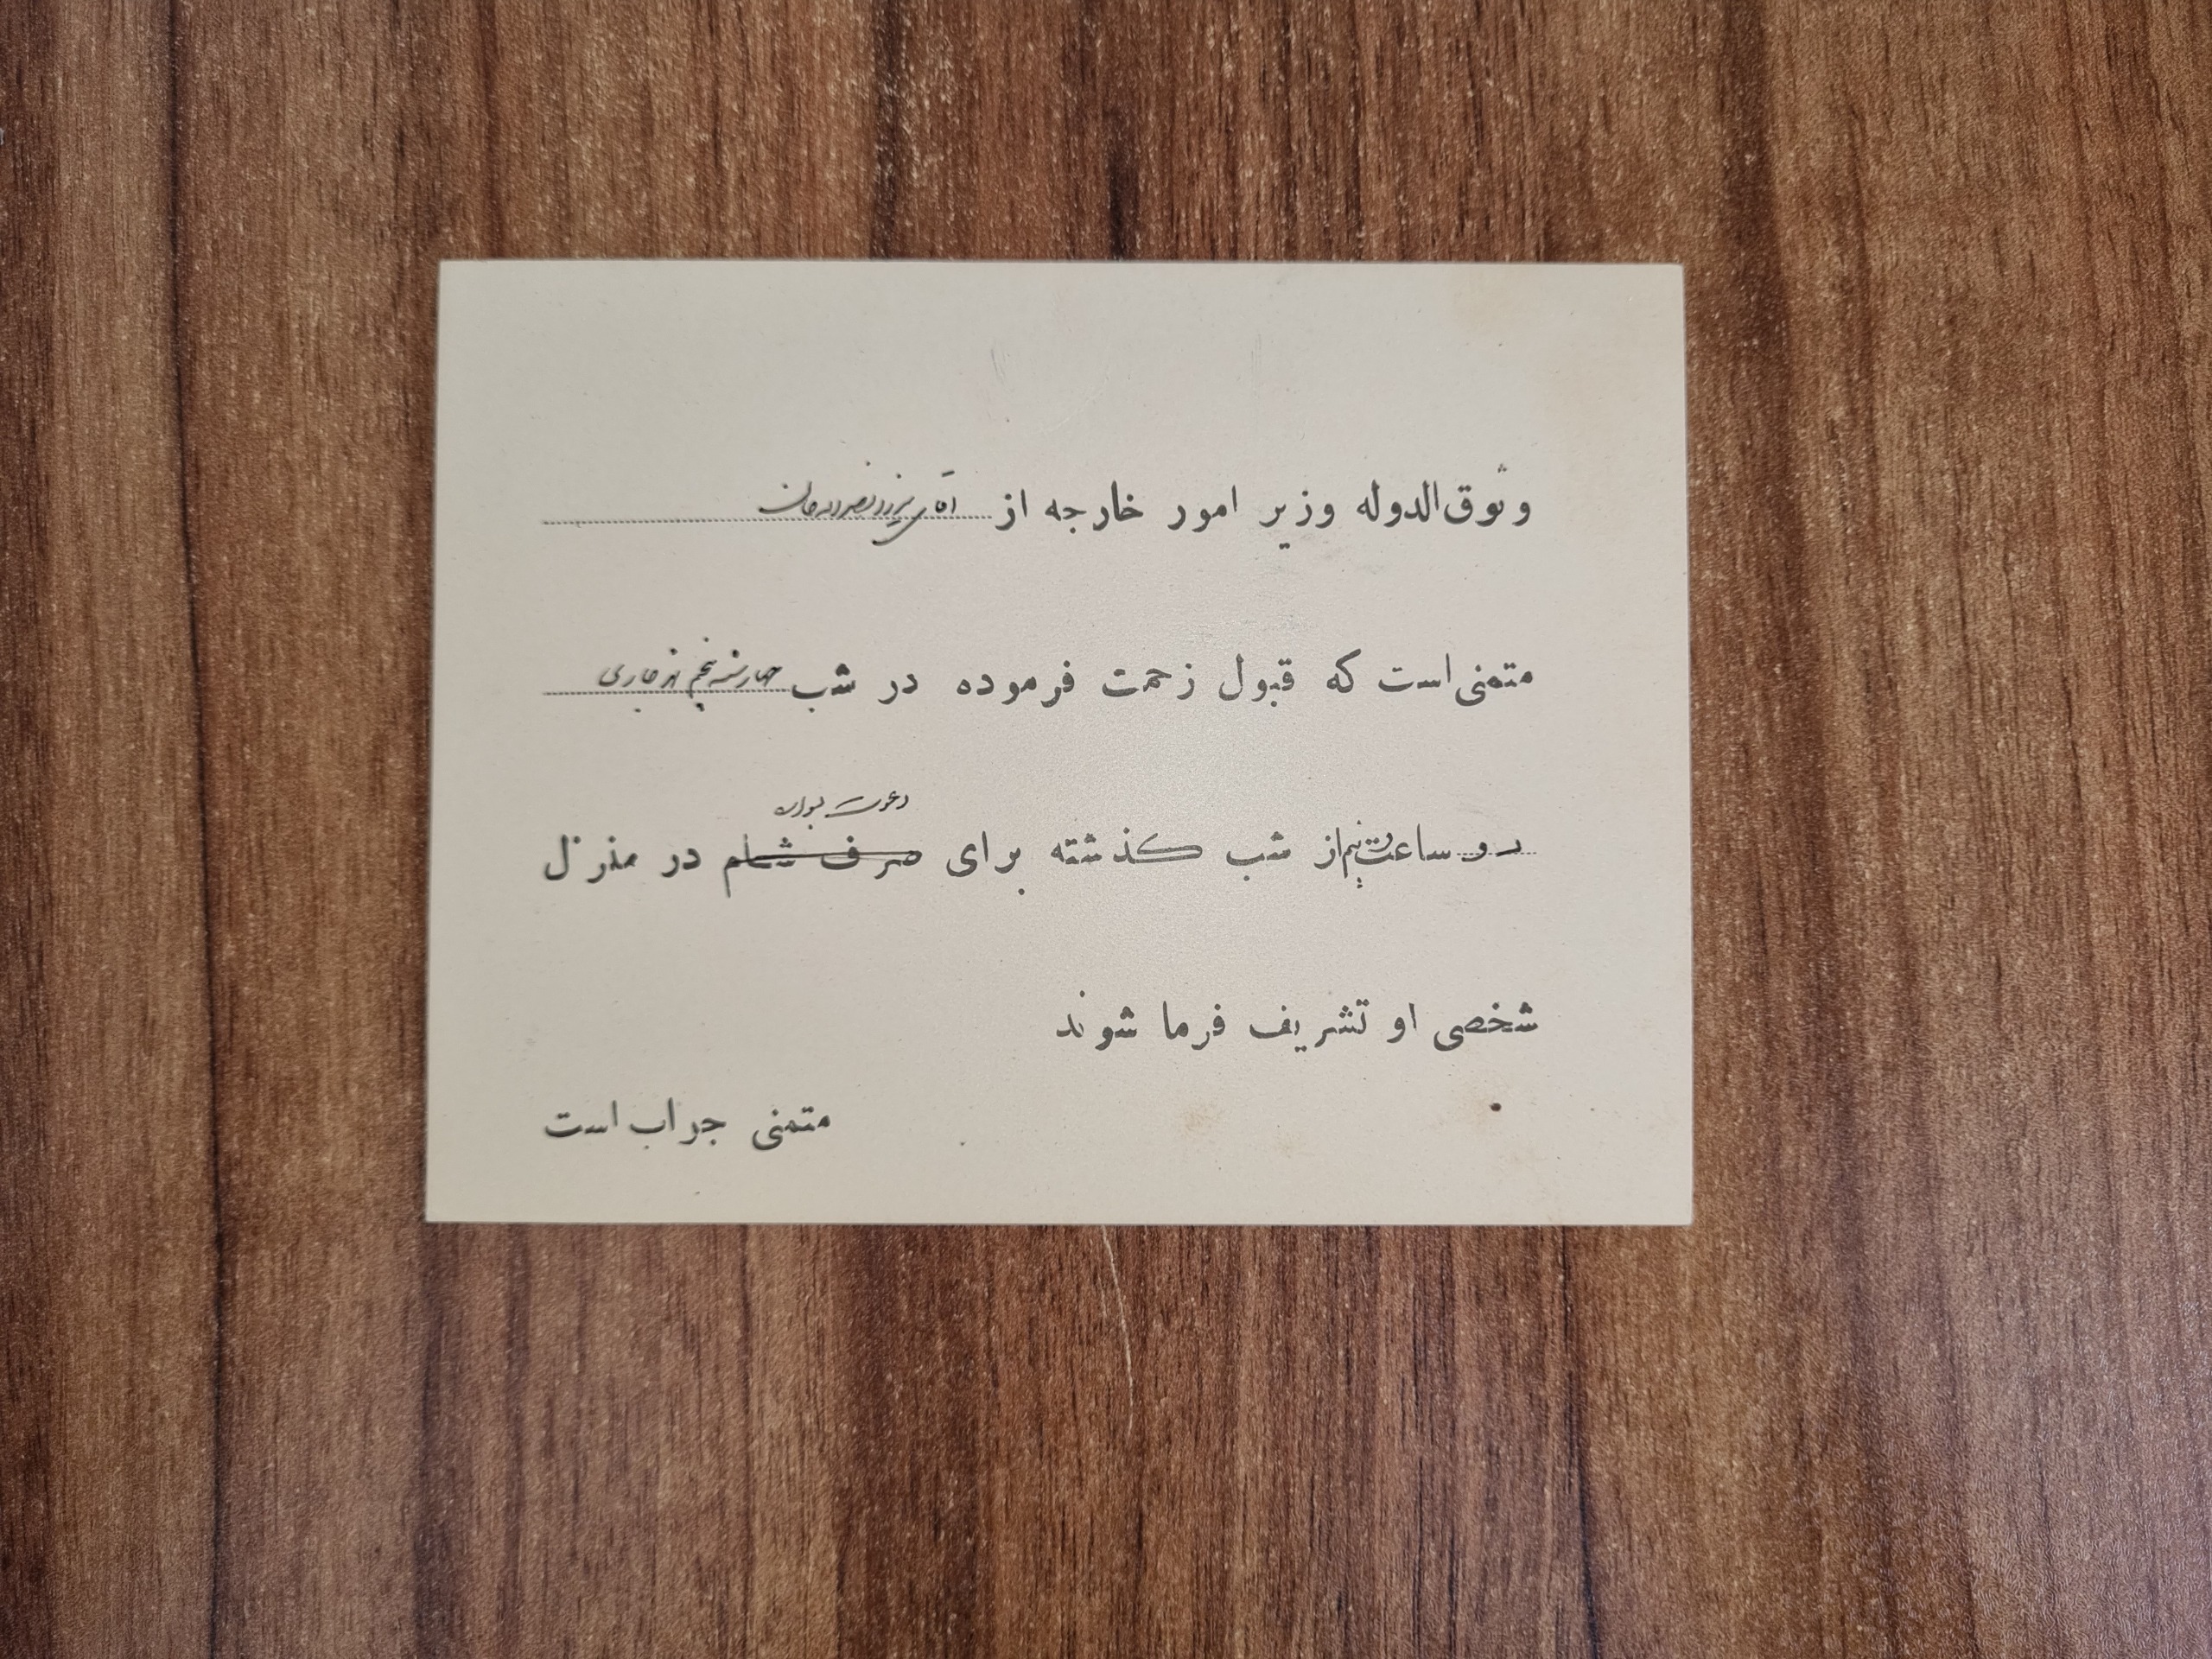 وثوق‌الدوله وزیر امور خارجه از آقای میرزا نصرالله خان
متمنی است که قبول زحمت فرموده در شب چهارشنبه پنجم شهر جاری
دو ساعت و نیم از شب گذشته برای صرف شام در منزل
شخصی او تشریف فرما شوند
متمنی جواب است